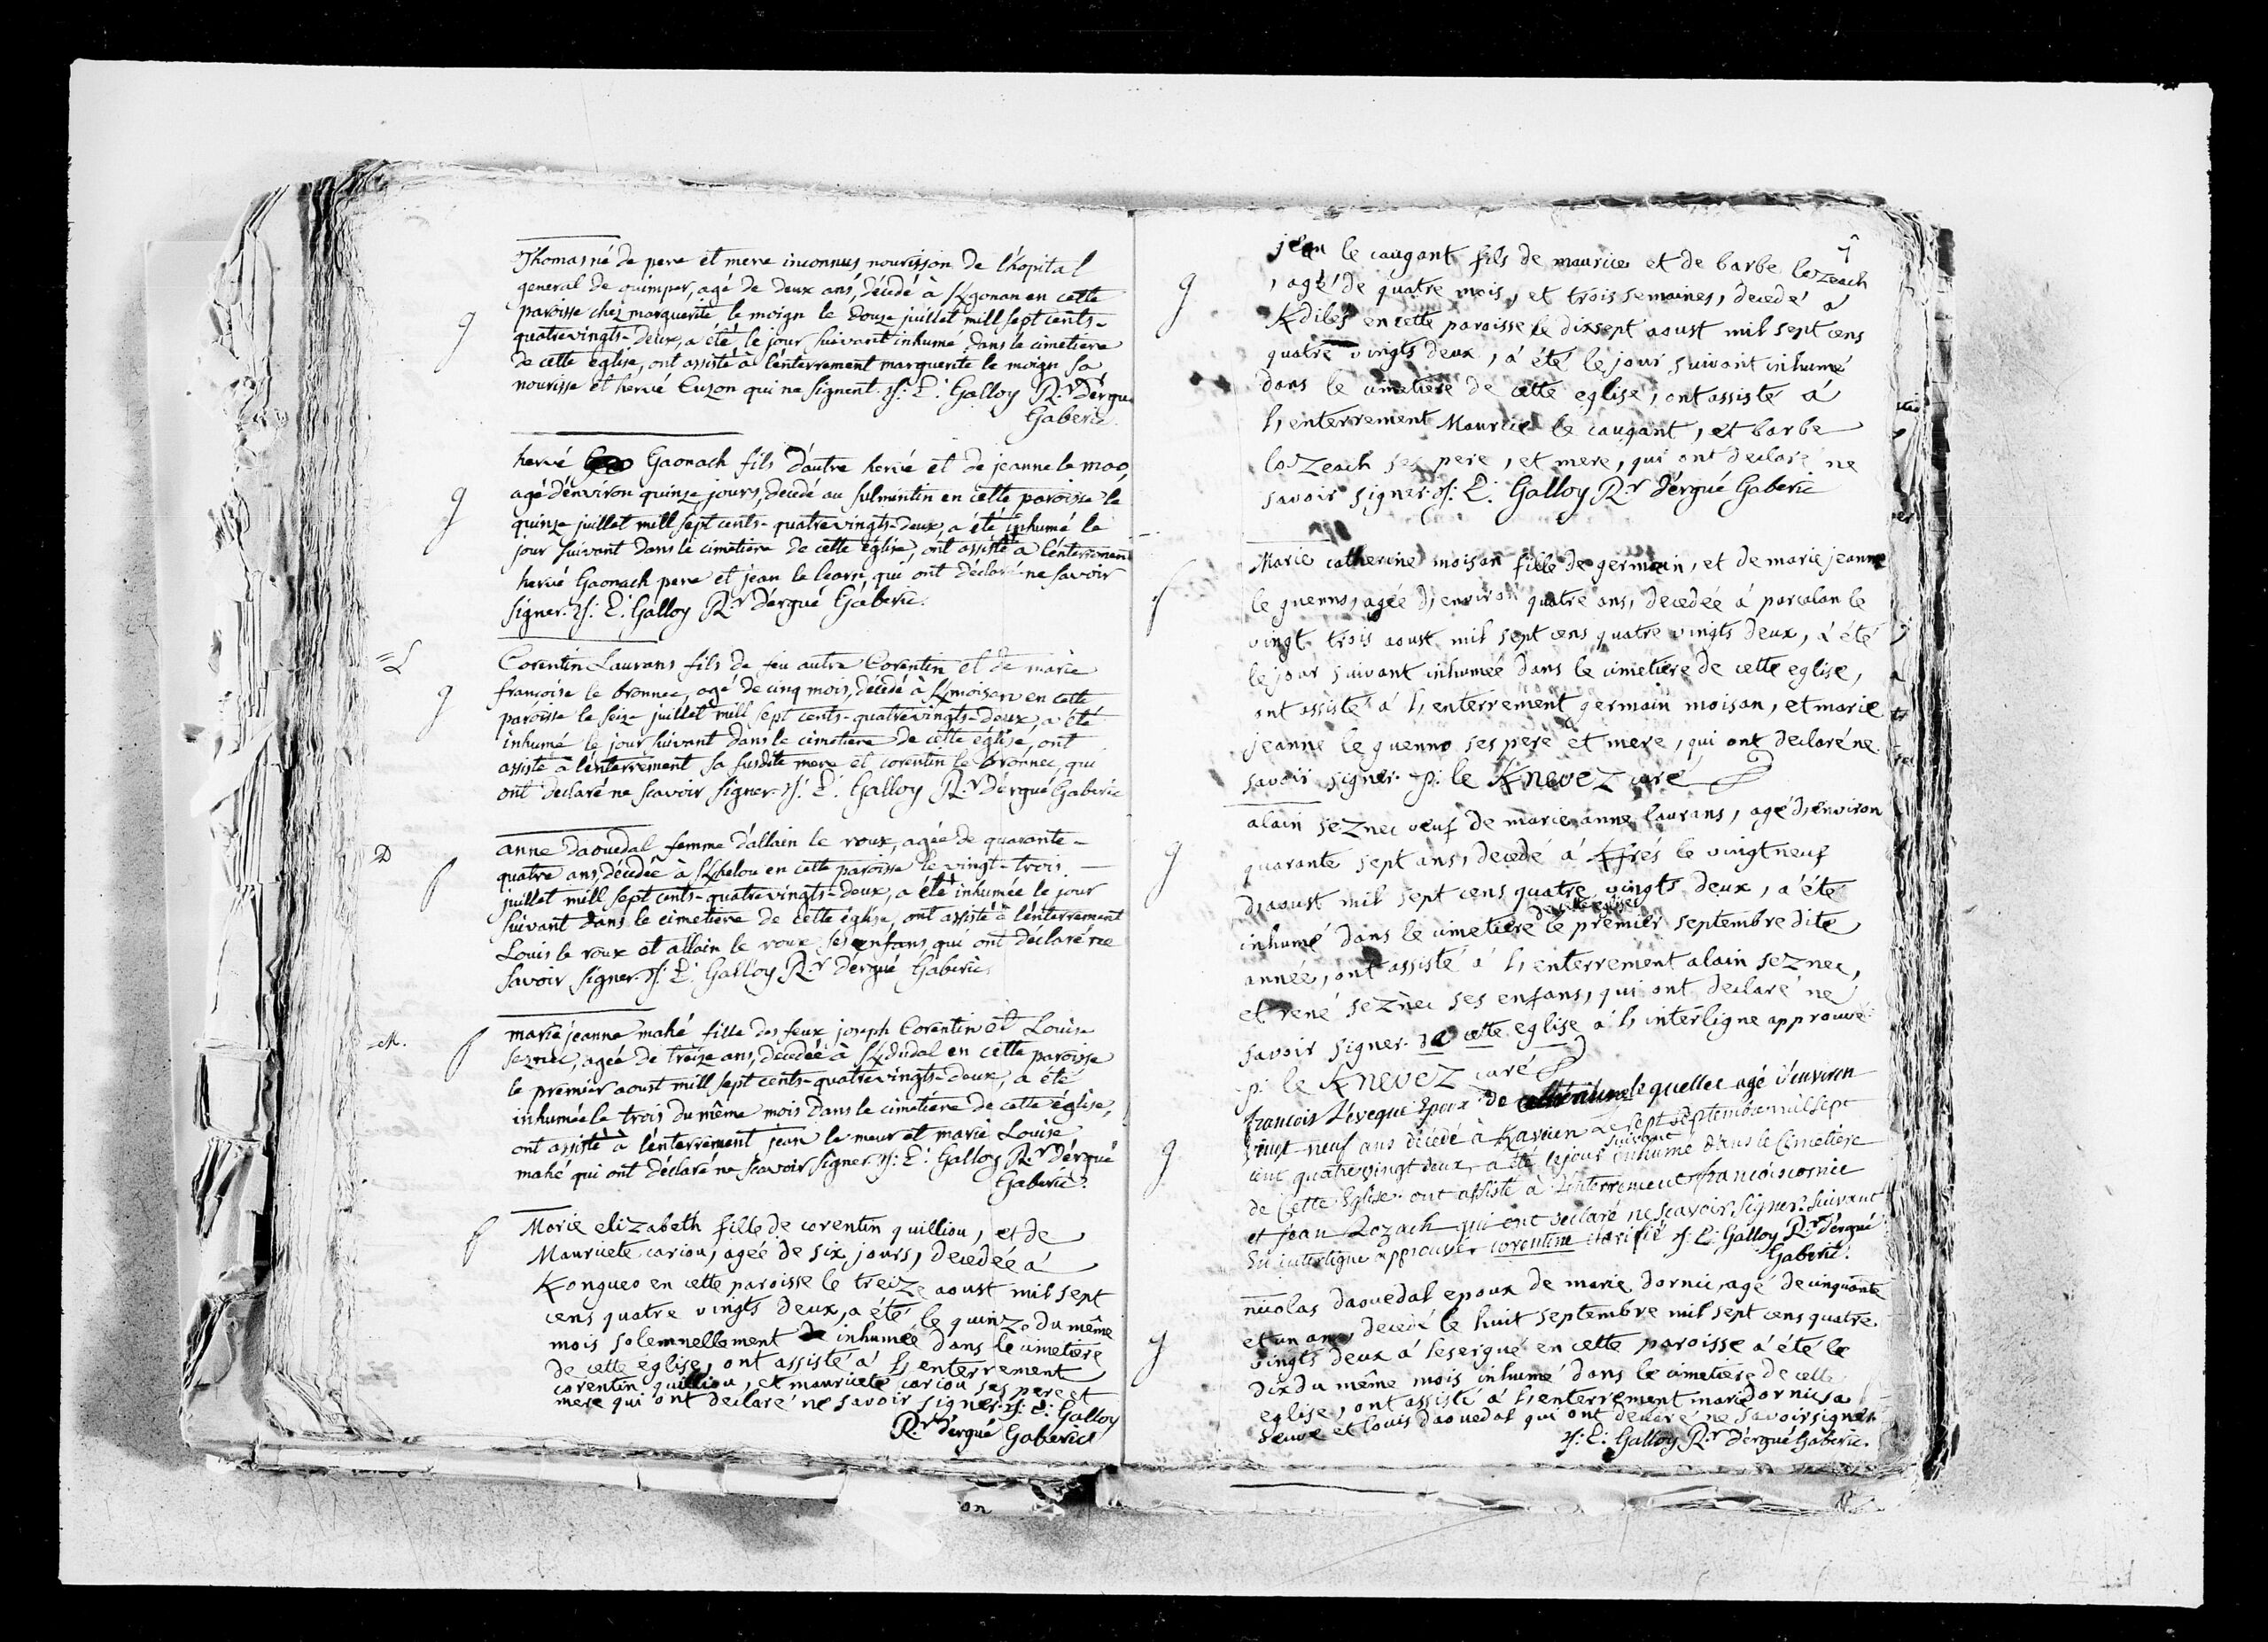 Thomas né de pere et mere inconnus nourisson de l'hopital
general de quimper, agé de deux ans, décédé à Kgonan en cette
paroisse chez marguerite le moign le douze juillet mill sept cents-
quatrevingts-deux, a été le jour suivant inhumé dans le cimetiere
de cette eglise, ont assisté à l'enterrement marguerite le moign sa
nourisse et hervé Euzon qui ne signent. J: L: Galloy R.r d'ergué
Gaberic.
g
hervé Gaonach fils d'autre hervé et de jeanne le mao,
agé d'environ quinze jours, decedé au sulmintin en cette paroisse le
quinze juillet mill sept cents-quatrevingts-deux, a été inhumé le
jour suivant dans le cimetiere de cette église, ont assisté a l'enterrement
hervé Gaonach pere et jean le learn, qui ont déclaré ne savoir
signer. J: L: Galloy R.r d'ergué Gaberic.
g
=L
Corentin Laurans fils de feu autre Corentin et de marie
françoise le bronnec, agé de cinq mois, décédé à Kmoisan en cette
paroisse le seize juillet mill sept cents-quatrevingts-deux, a été
inhumé le jour suivant dans le cimetiere de cette église, ont
assisté à l'enterrement sa susdite mere et corentin le bronnec, qui
ont declaré ne scavoir signer. J: L: Galloy R.r d'ergué Gaberic
g
D
anne daouedal femme d'allain le roux, agée de quarante-
quatre ans, décédée à Khelou en cette paroisse le vingt-trois
juillet mill sept cents-quatrevingts-deux, a été inhumée le jour
suivant dans le cimetiere de cette église, ont assisté à l'enterrement
Louis le roux et allain le roux ses enfans, qui ont déclaré ne
savoir signer. J: L: Galloy R.r d'ergué Gaberic
f
M.
marie jeanne mahé fille des feux joseph Corentin et Louise
seznec, agée de treize ans, decedée à Kdudal en cette paroisse
le premier aoust mill sept cents-quatrevingts-deux, a été
inhumée le trois du même mois dans le cimetiere de cette église,
ont assisté à l'enterrement jean le meur et marie Louise
mahé qui ont déclaré ne scavoir signer. J: L: Galloy R.r d'ergué
Gaberic.
f
Marie elizabeth fille de corentin quilliou, et de
Mauricete cariou, agée de six jours, decedée á
Kongueo en cette paroisse le treize aoust mil sept
cens quatre vingts deux, a été le quinze du même
mois solemnellement de inhumée dans le cimetiere
de cette eglise, ont assisté á l, enterrement
corentin quilliou, et mauricete cariou ses pere et
mere qui ont declaré ne savoir signer. J: L: Galloy
R.r d'ergué Gaberic
f
on
jean le caugant fils de maurice et de barbe lozeach
, agé de quatre mois, et trois semaines, decedé á
Kdiles en cette paroisse le dixsept aoust mil sept cens
quatre vingts deux, á été le jour suivant inhumé
dans le cimetiere de cette eglise, ont assisté á
l, enterrement Maurice le caugant, et barbe
lozeach ses pere, et mere, qui ont declaré ne
savoir signer. J: L: Galloy R.r d'ergué Gaberic
g
Marie catherine moisan fille de germain, et de marie jeanne
le guenno, agée d, environ quatre ans, decedée á parcalan le
vingt trois aoust mil sept cens quatre vingts deux, á été
le jour suivant inhumée dans le cimetiere de cette eglise,
ont assisté á l, enterrement germain moisan, et marie
jeanne le guenno ses pere et mere, qui ont declaré ne
savoir signer. p: le Knevez curé
f
alain seznec veuf de marie anne laurans, agé d, environ
quarante sept ans, decedé á Kfrés le vingt neuf
d, aoust mil sept cens quatre vingts deux, a été
de cette eglise
inhumé dans le cimetiere le premier septembre dite
année, ont assisté á l, enterrement alain seznec,
et rené seznec ses enfans, qui ont declaré ne
savoir signer. de cette eglise á l, interligne approuvé.
p: le Knevez curé
g
françois Lévéque Epoux de le quellec agé d'environ
vingt-neuf ans décédé à Kavrien le sept septembre mil sept
cent quatrevingt deux, a été le jour suivant inhumé dans le Cimetiere
de Cette Eglise. ont assisté à l'enterrement françois cornic
et jean Lozach qui ont declaré ne scavoir signer. suivant
En interligne approuvé. corentine clarifié J: L: Galloy R.r d'ergué
Gaberic.
g
nicolas daouedal epoux de marie dornic, agé de cinquante
et un ans, decedé le huit septembre mil sept cens quatre
vingts deux á lesergué en cette paroisse á été le
dix du même mois inhumé dans le cimetiere de cette
eglise, ont assisté á l, enterrement marie dornic sa
veuve et louis daouedal qui ont declaré ne savoir signer.
J: L: Galloy R.r d'ergué Gaberic.
g